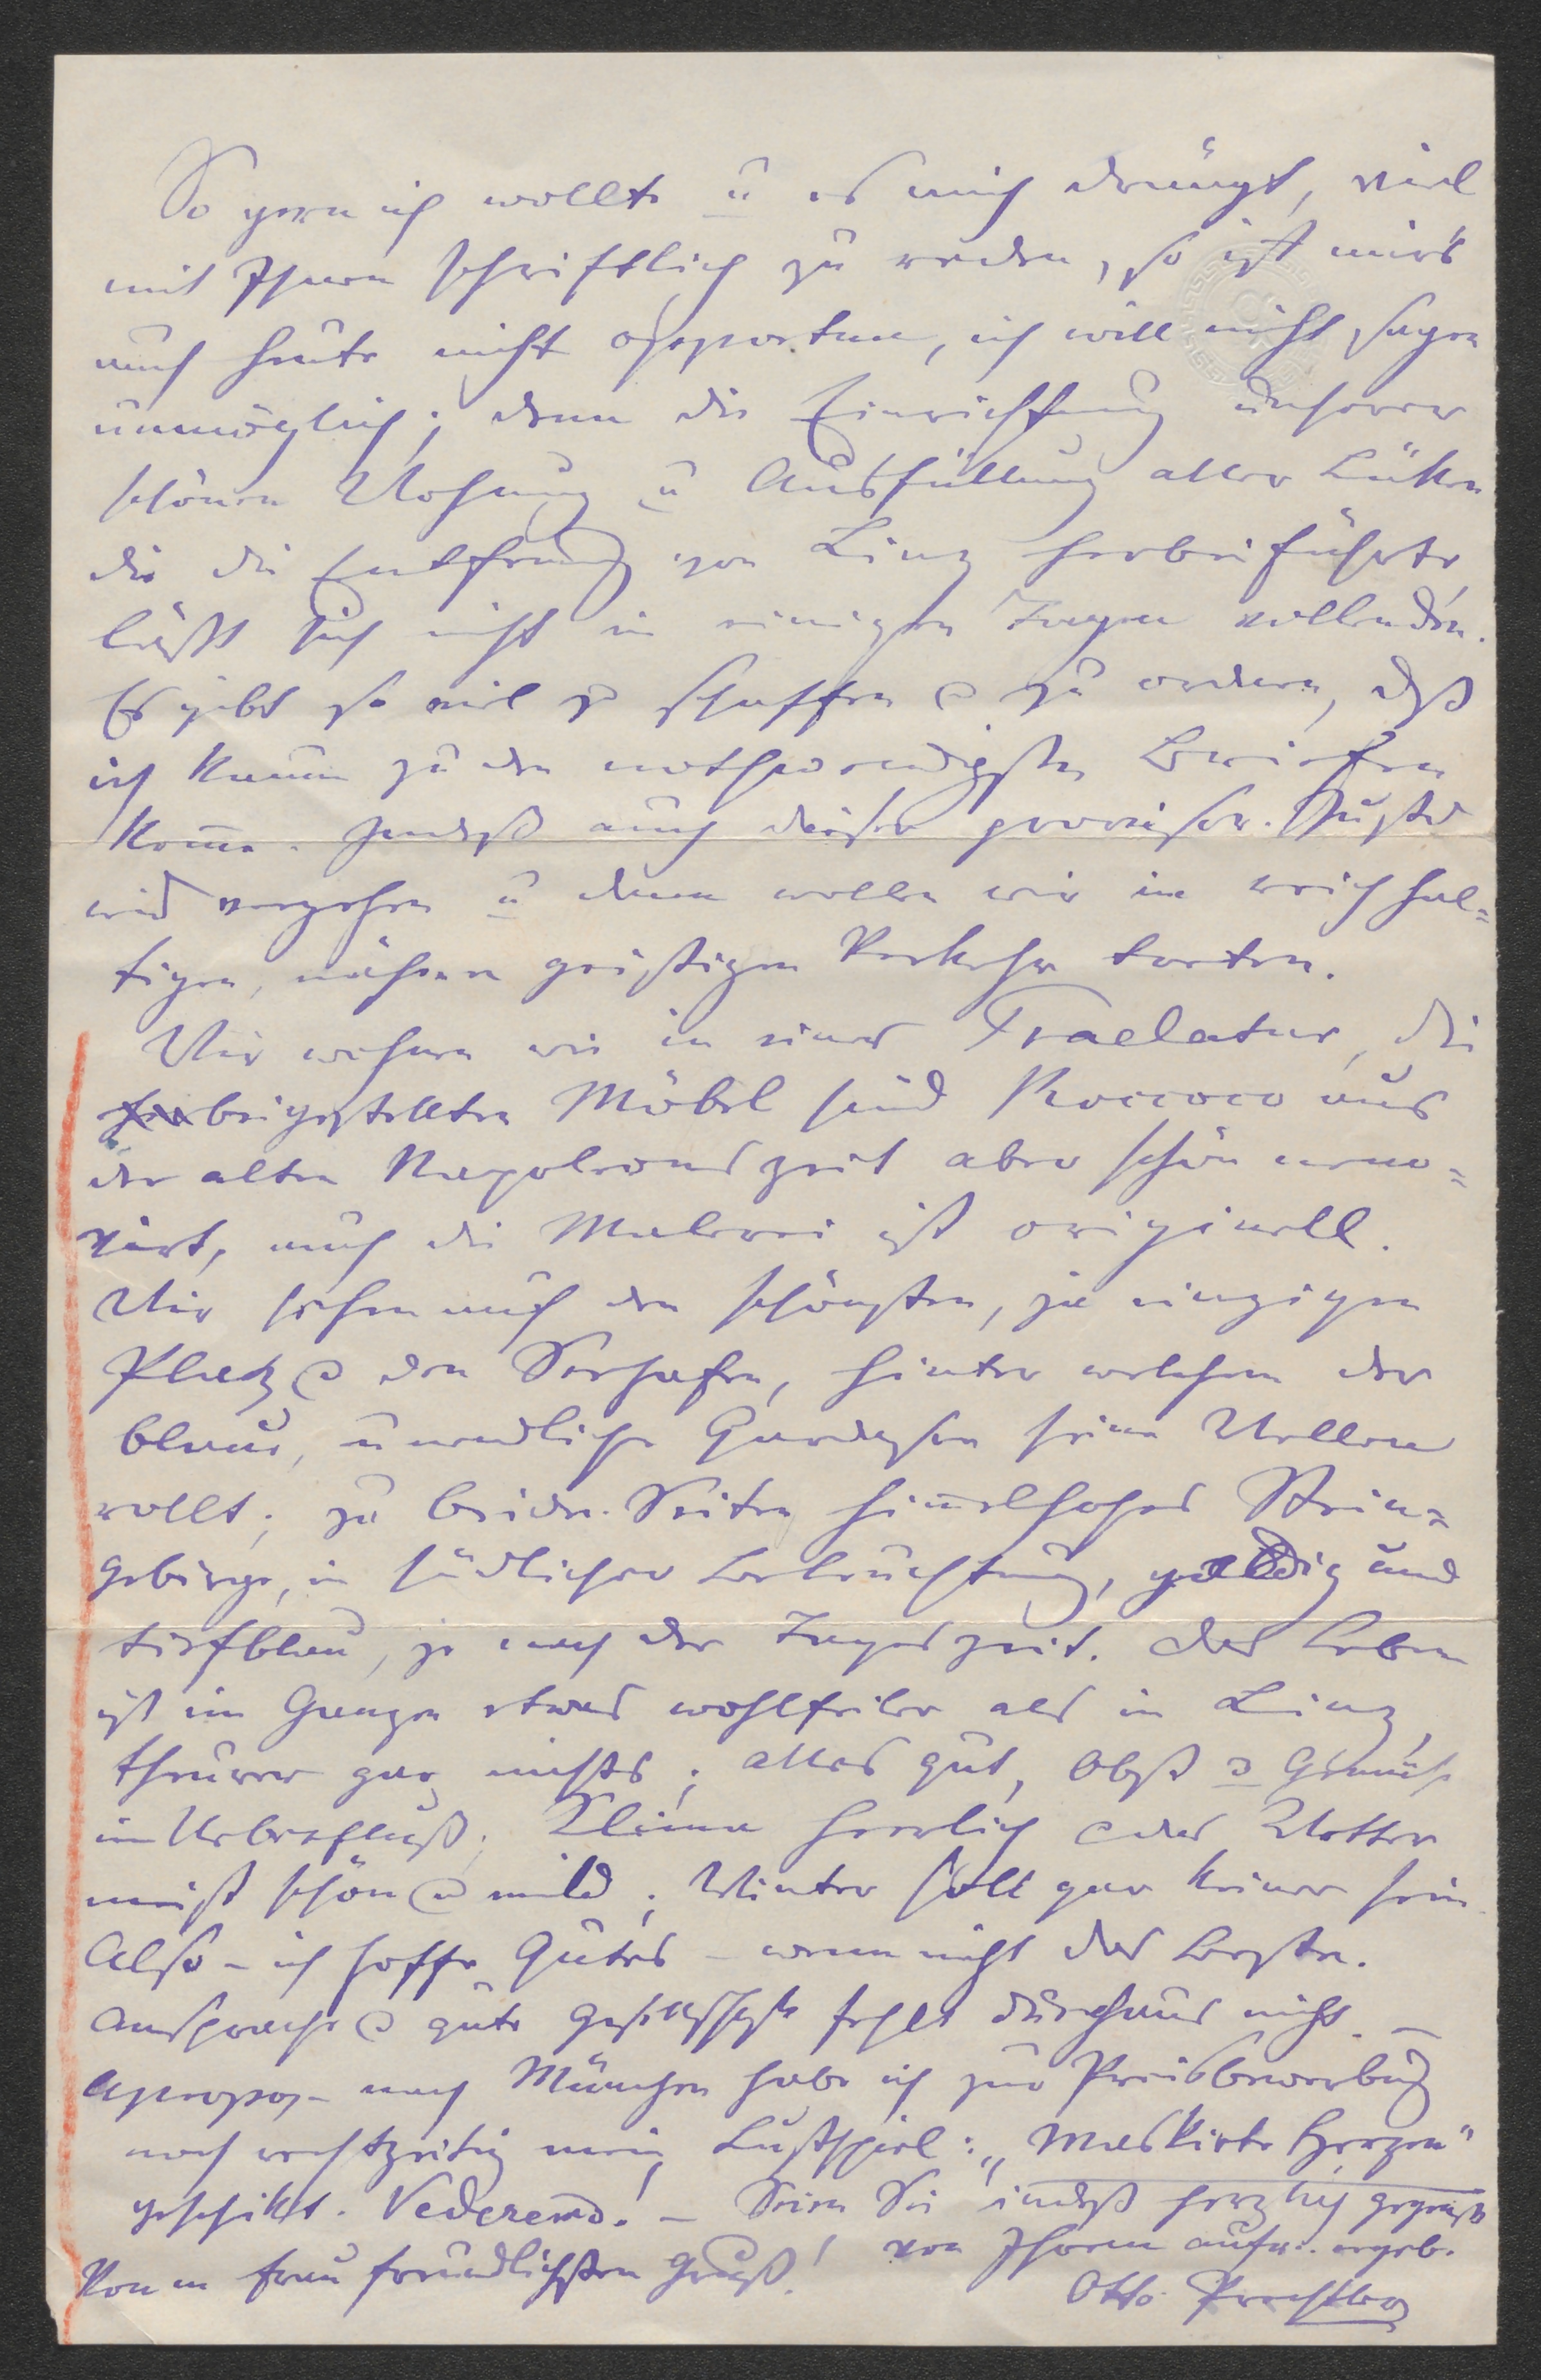 So gern ich wollte u es mich drängt, viel
mit Ihnen schriftlich zu reden, so ist mir's
auch heute nicht opportun, ich will nicht sagen
unmöglich; denn die Einrichtung unserer
schönen Wohnung u Ausfüllung aller Lücken
die die Entfernung von Linz herbeiführte,
läßt sich nicht in einigen Tagen vollenden.
Es gibt so viel zu schaffen u zu ordnen, daß
ich kaum zu den nothwendigsten Briefen
kom̅e. Indeß auch dieser provisor. Zustd
wird vergehen u dann wollen wir in reichhal=
tigen, nähern geistigen Verkehr treten.
Wir wohnen wie in einer Praelatur, die
beigestellten Möbel sind Roccoco aus
der alten Napoleonszeit aber schön reno=
virt, auch die Malerei ist originell.
Wir sehen auf den schönsten, ja einzigen
Platz u den Seehafen, hinter welchem der
blaue, unendliche Gardasee seine Wellen
rollt; zu beiden Seiten him̅elhohes Stein=
gebirge, in südlicher Beleuchtung, goldig und
tiefblau, je nach der Tageszeit. Das Leben
ist im Ganzen etwas wohlfeiler als in Linz,
theurer gar nichts; alles gut, Obst u Gemüse
im Ueberfluß; Klima herrlich das Wetter
meist schön u mild; Winter soll gar keiner sein.
Also – ich hoffe Gutes – wenn nicht das Beste.
Ansprache u gute Gesellschaft fehlt durchaus nicht. –
Apropos – nach München habe ich zur Preisbewerbung
noch rechtzeitig mein Lustspiel: „Maskirte Herzen"
geschikt. Vederemo! – Seien Sie indeß herzlich gegrüßt
von Ihrem aufr. ergeb.
Von m Frau freundlichsten Gruß!
Otto Prechtler